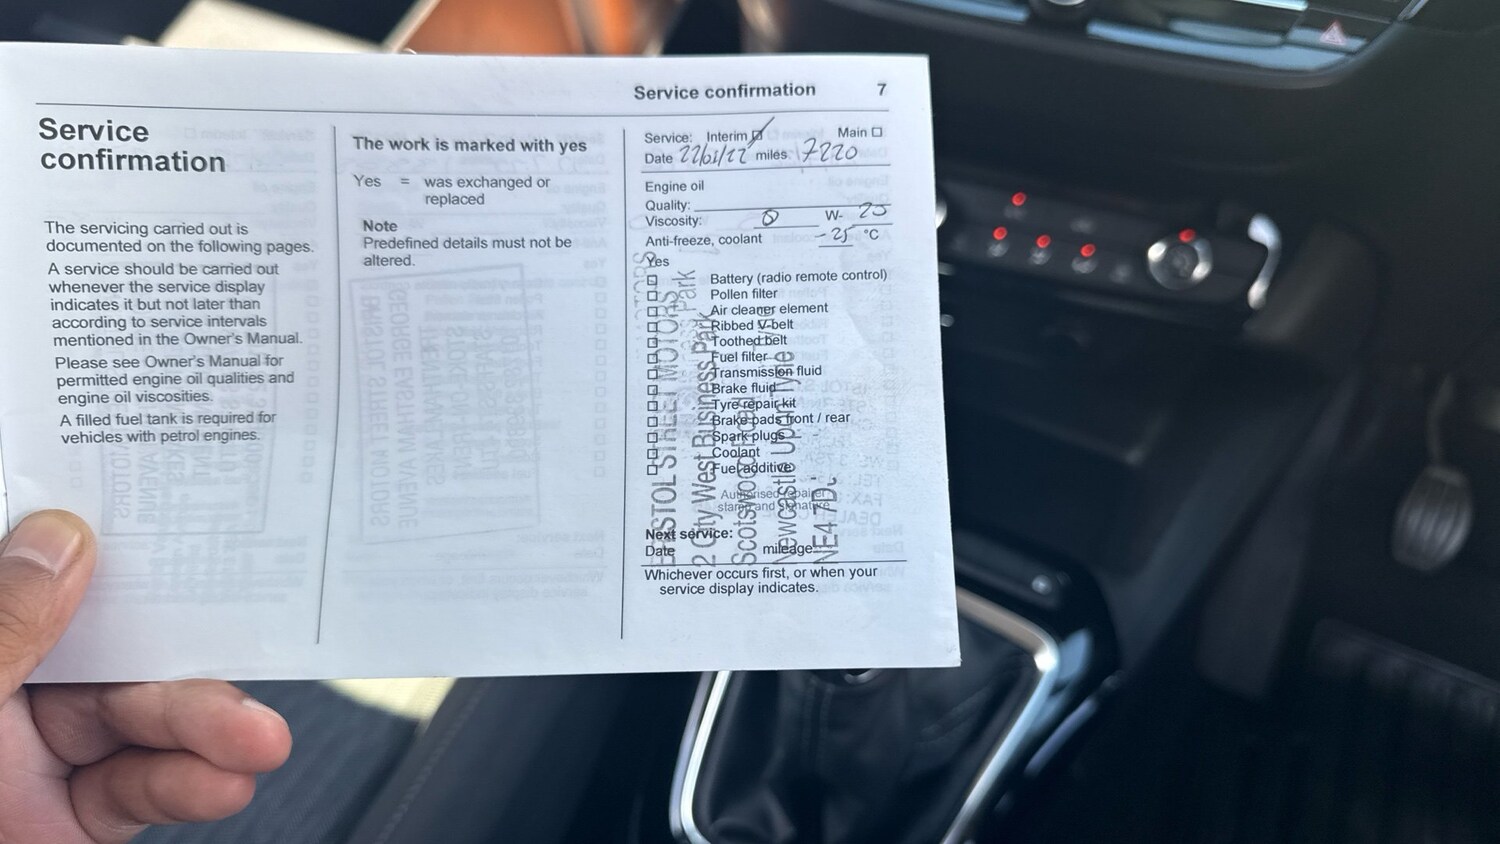 Service confirmation 7
Service
confirmation
The servicing carried out is
documented on the following pages.
A service should be carried out
whenever the service display
indicates it but not later than
according to service intervals
mentioned in the Owner's Manual.
Please see Owner's Manual for
permitted engine oil qualities and
engine oil viscosities.
A filled fuel tank is required for
vehicles with petrol engines.
The work is marked with yes
Yes = was exchanged or
replaced
Note
Predefined details must not be
altered.
Service: Interim Main
Date miles: 7220
Engine oil
Quality:
Viscosity: 0 W-
Anti-freeze, coolant -25 °C
Yes
Battery (radio remote control)
Pollen filter
Air cleaner element
Ribbed V-belt
Toothed belt
Fuel filter
Transmission fluid
Brake fluid
Tyre repair kit
Brake pads front / rear
Spark plugs
Coolant
Fuel additive
Authorised repairer
stamp and signature
Next service:
Date mileage:
Whichever occurs first, or when your
service display indicates.
BRISTOL STREET MOTORS
2 City West Business Park
Scotswood Road
Newcastle Upon Tyne
NE4 7D